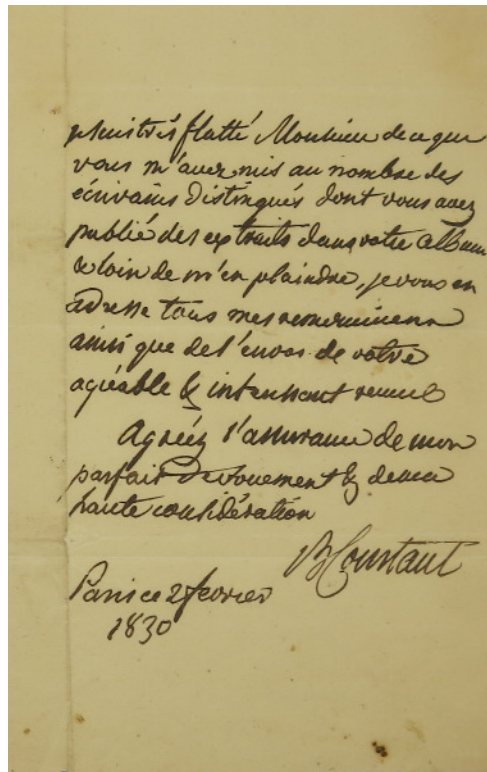 je suis très flatté Monsieur de ce que
vous m'avez mis au nombre des
écrivains distingués dont vous avez
publié des extraits dans votre album
& loin de m'en plaindre, je vous en
adresse tous mes remerciemens
ainsi que de l'envoi de votre
agréable & intéressant recueil
Agréez l'assurance de mon
parfait dévouement & de ma
haute considération
B Constant
Paris ce 2 février
1830